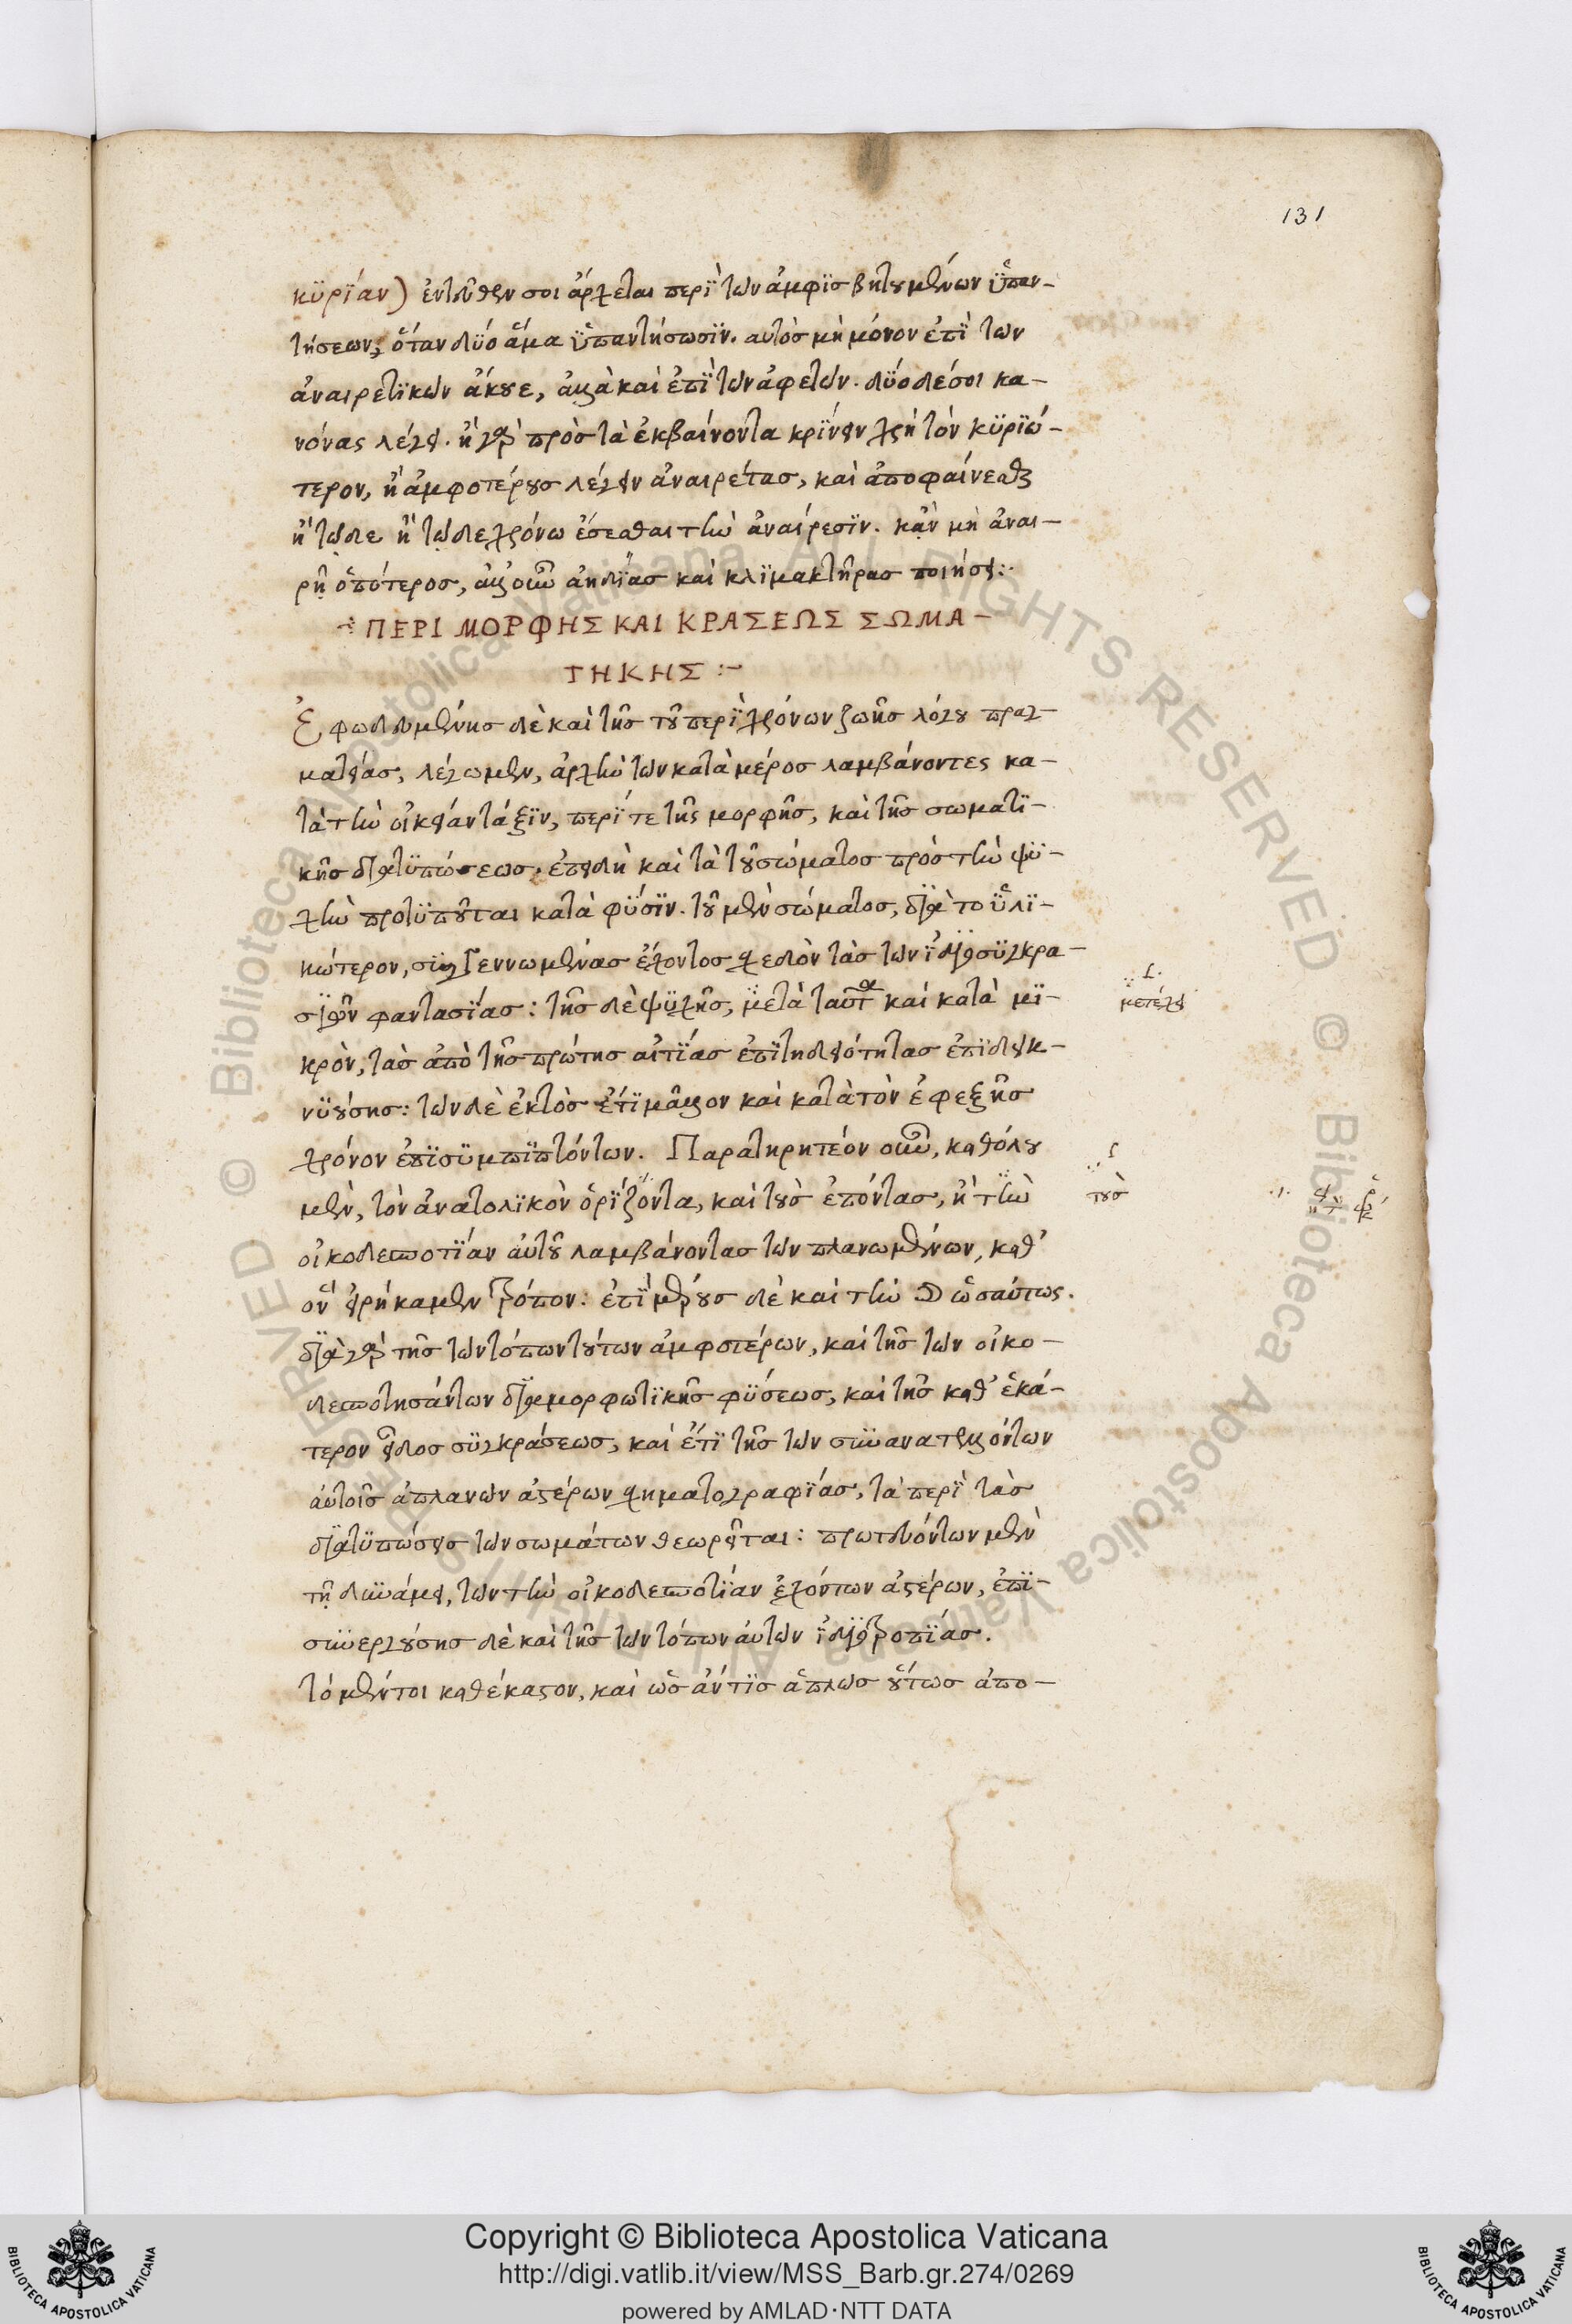 131
κϋρΐαν) ἐντεῦθεν σοι ἄρχεται περῒ τῶν ἀμφϊσβητουμένων ὑπαν-
τήσεων, ὅταν δύο ἅμα ὑπαντήσωσϊν. αὐτὸς μὴ μόνον ἐπῒ των
ἀναιρετϊκῶν ἄκουε, ἀλλὰ καὶ ἐπῒ τῶν ἀφετῶν. δύο δέ σοι κα-
νόνας λέγει. ἢ γὰρ πρὸς τὰ ἐκβαίνοντα κρΐνειν χρὴ τὸν κϋρϊώ-
τερον, ἢ ἀμφοτέρους λέγειν ἀναιρέτας, καὶ ἀποφαίνεσθαι
ἢ τῷδε ἢ τῷδε χρόνω ἔσεσθαι τὴν ἀναίρεσϊν. κἂν μὴ ἀναι-
ρῇ ὁπότερος, ἀλλ οὖν ἀηδΐας καὶ κλϊμακτῆρας ποιήσει:
ΠΕΡΙ ΜΟΡΦΗΣ ΚΑΙ ΚΡΑΣΕΩΣ ΣΩΜΑ-
ΤΗΚΗΣ :-
Ἐφωδευμένης δὲ καὶ τῆς τοῦ περῒ χρόνων ζωῆς λόγου πραγ-
ματείας, λέγωμεν, ἀρχὴν τῶν κατὰ μέρος λαμβάνοντες κα-
τὰ τὴν οἰκείαν τάξϊν, περΐ τε τῆς μορφῆς, καὶ τῆς σωματϊ-
κῆς διατϋπώσεως. ἐπειδὴ καὶ τὰ τοῦ σώματος πρὸς τὴν ψϋ-
χὴν προτϋποῦται κατὰ φύσϊν. τοῦ μὲν σώματος, διὰ το ὑλϊ-
κώτερον, συγγεννωμένας ἔχοντος σχεδὸν τὰς τῶν ἰδιοσϋγκρα-
σιῶν φαντασΐας: τῆς δὲ ψϋχῆς, μετὰ ταῦτα καὶ κατὰ μϊ-
κρὸν, τὰς ἀπὸ τῆς πρώτης αἰτΐας ἐπϊτηδειότητας ἐπϊδεικ-
νϋούσης: τῶν δὲ ἐκτὸς ἔτϊ μᾶλλον καὶ κατὰ τὸν ἐφεξῆς
χρόνον ἐπϊσϋμπϊπτόντων. Παρατηρητέον οὖν, καθόλου
μὲν, τὸν ἀνατολϊκὸν ὁρΐζοντα, καὶ τοὺς ἐπόντας, ἢ τὴν
οἰκοδεσποτΐαν αὐτοῦ λαμβάνοντας τῶν πλανωμένων, καθ'
ὃν εἰρήκαμεν τρόπον: ἐπῒ μέρους δὲ καὶ τὴν ☽ ὡσαύτως.
διὰ γὰρ τῆς τῶν τόπων τούτων ἀμφοτέρων, καὶ τῆς τῶν οἰκο-
δεσποτησάντων διαμορφωτϊκῆς φύσεως, καὶ τῆς καθ' ἑκά-
τερον εἶδος σϋγκράσεως, καὶ ἔτϊ τῆς τῶν συνανατελλόντων
αὐτοῖς ἀπλανῶν ἀστέρων σχηματογραφΐας, τὰ περῒ τὰς
διατϋπώσεις τῶν σωμάτων θεωρεῖται: πρωτευόντων μὲν
τῇ δυνάμει, τῶν τὴν οἰκοδεσποτΐαν ἐχόντων ἀστέρων, ἐπϊ-
συνεργούσης δὲ καὶ τῆς τῶν τόπων αὐτῶν ἰδιοτροπΐας.
τὸ μέντοι καθέκαστον, καὶ ὡς ἄν τϊς ἁπλῶς οὕτως ἀπο-
μετέχει
τοὺς